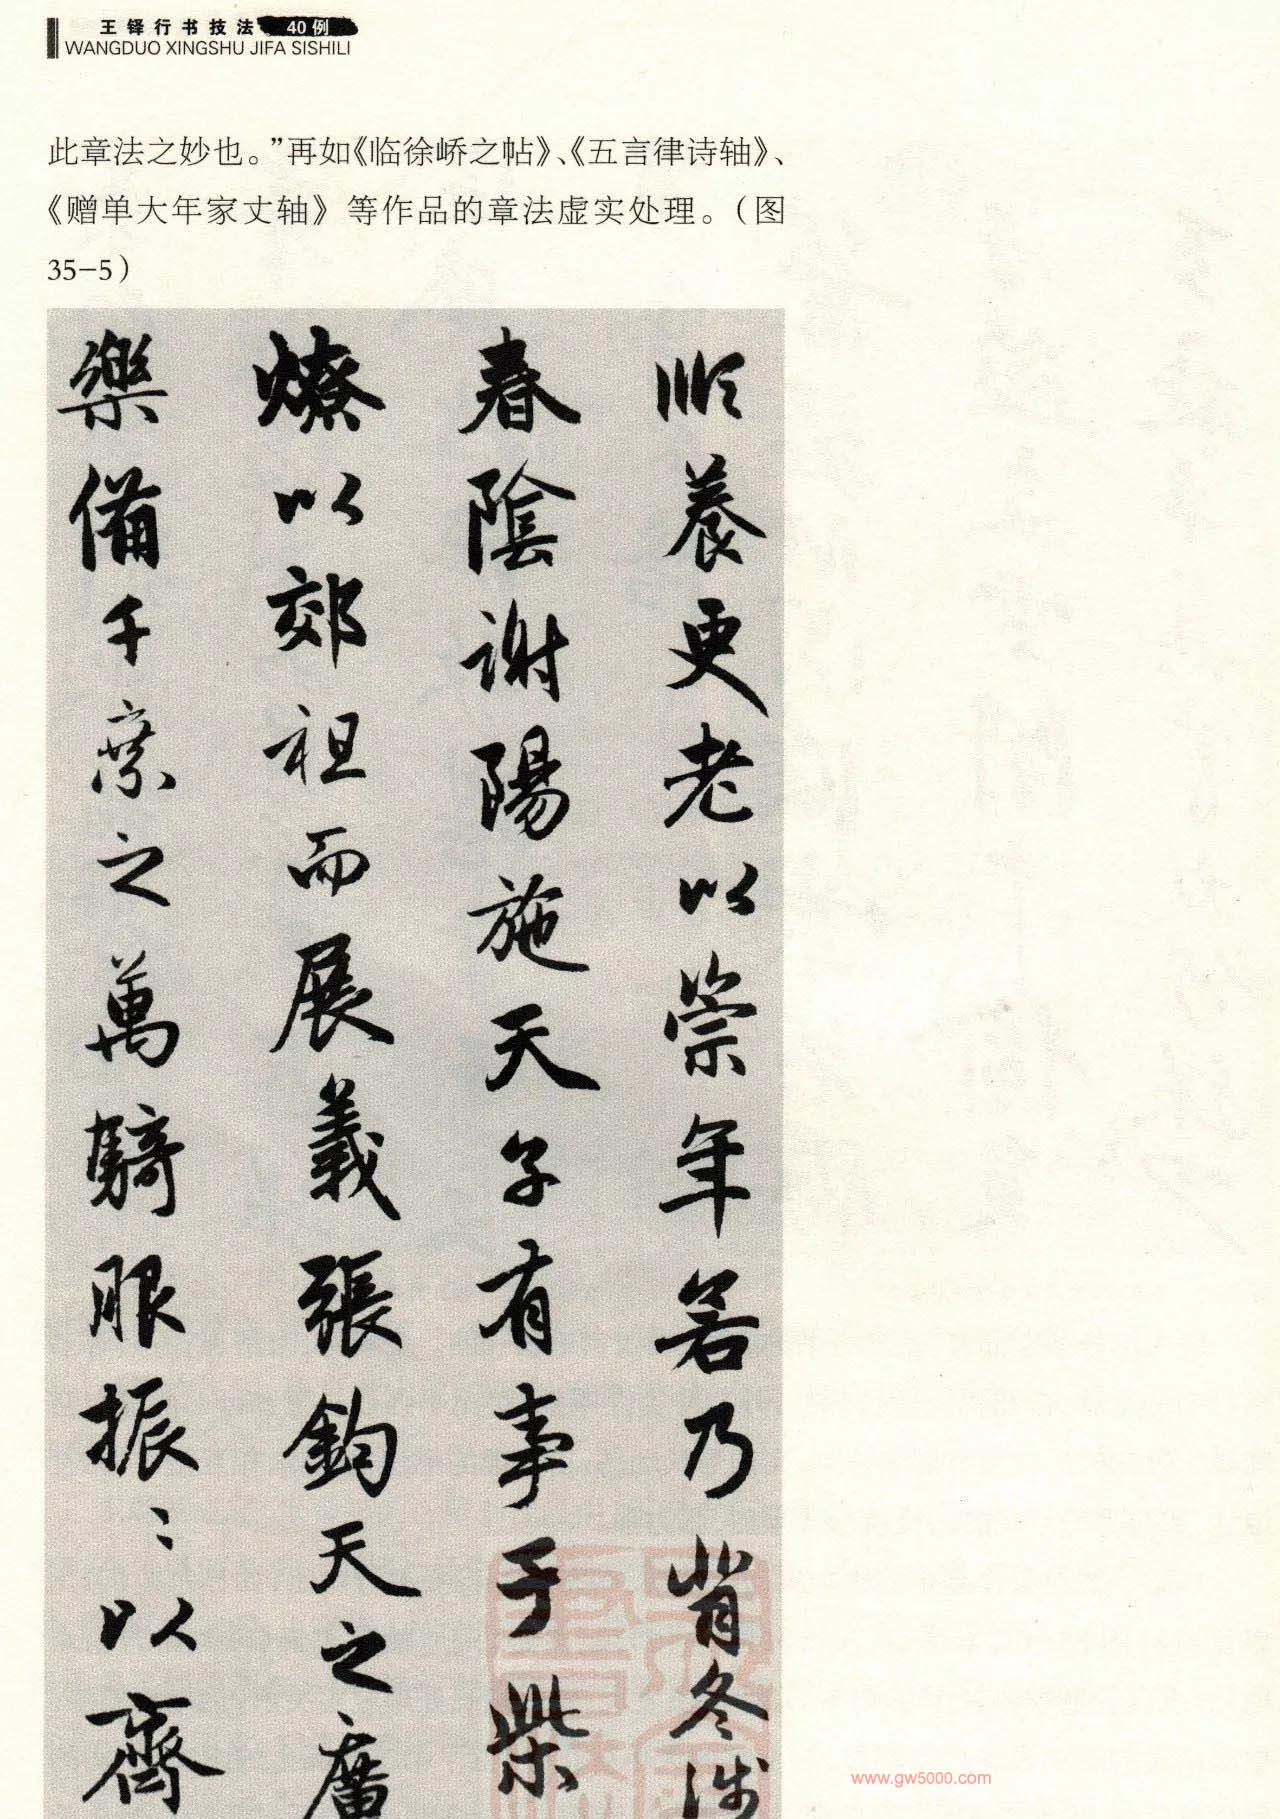 王铎行书技法 40例
WANGDUO XINGSHU JIFA SISHILI
此章法之妙也。”再如《临徐峤之帖》、《五言律诗轴》、
《赠单大年家丈轴》等作品的章法虚实处理。（图
35-5）
順養更老以崇年若乃背冬涉
春陰謝陽施天子有事于柴
燎以郊祖而展義張鈞天之廣
樂備千乘之萬騎服振〻以齊
www.gw5000.com